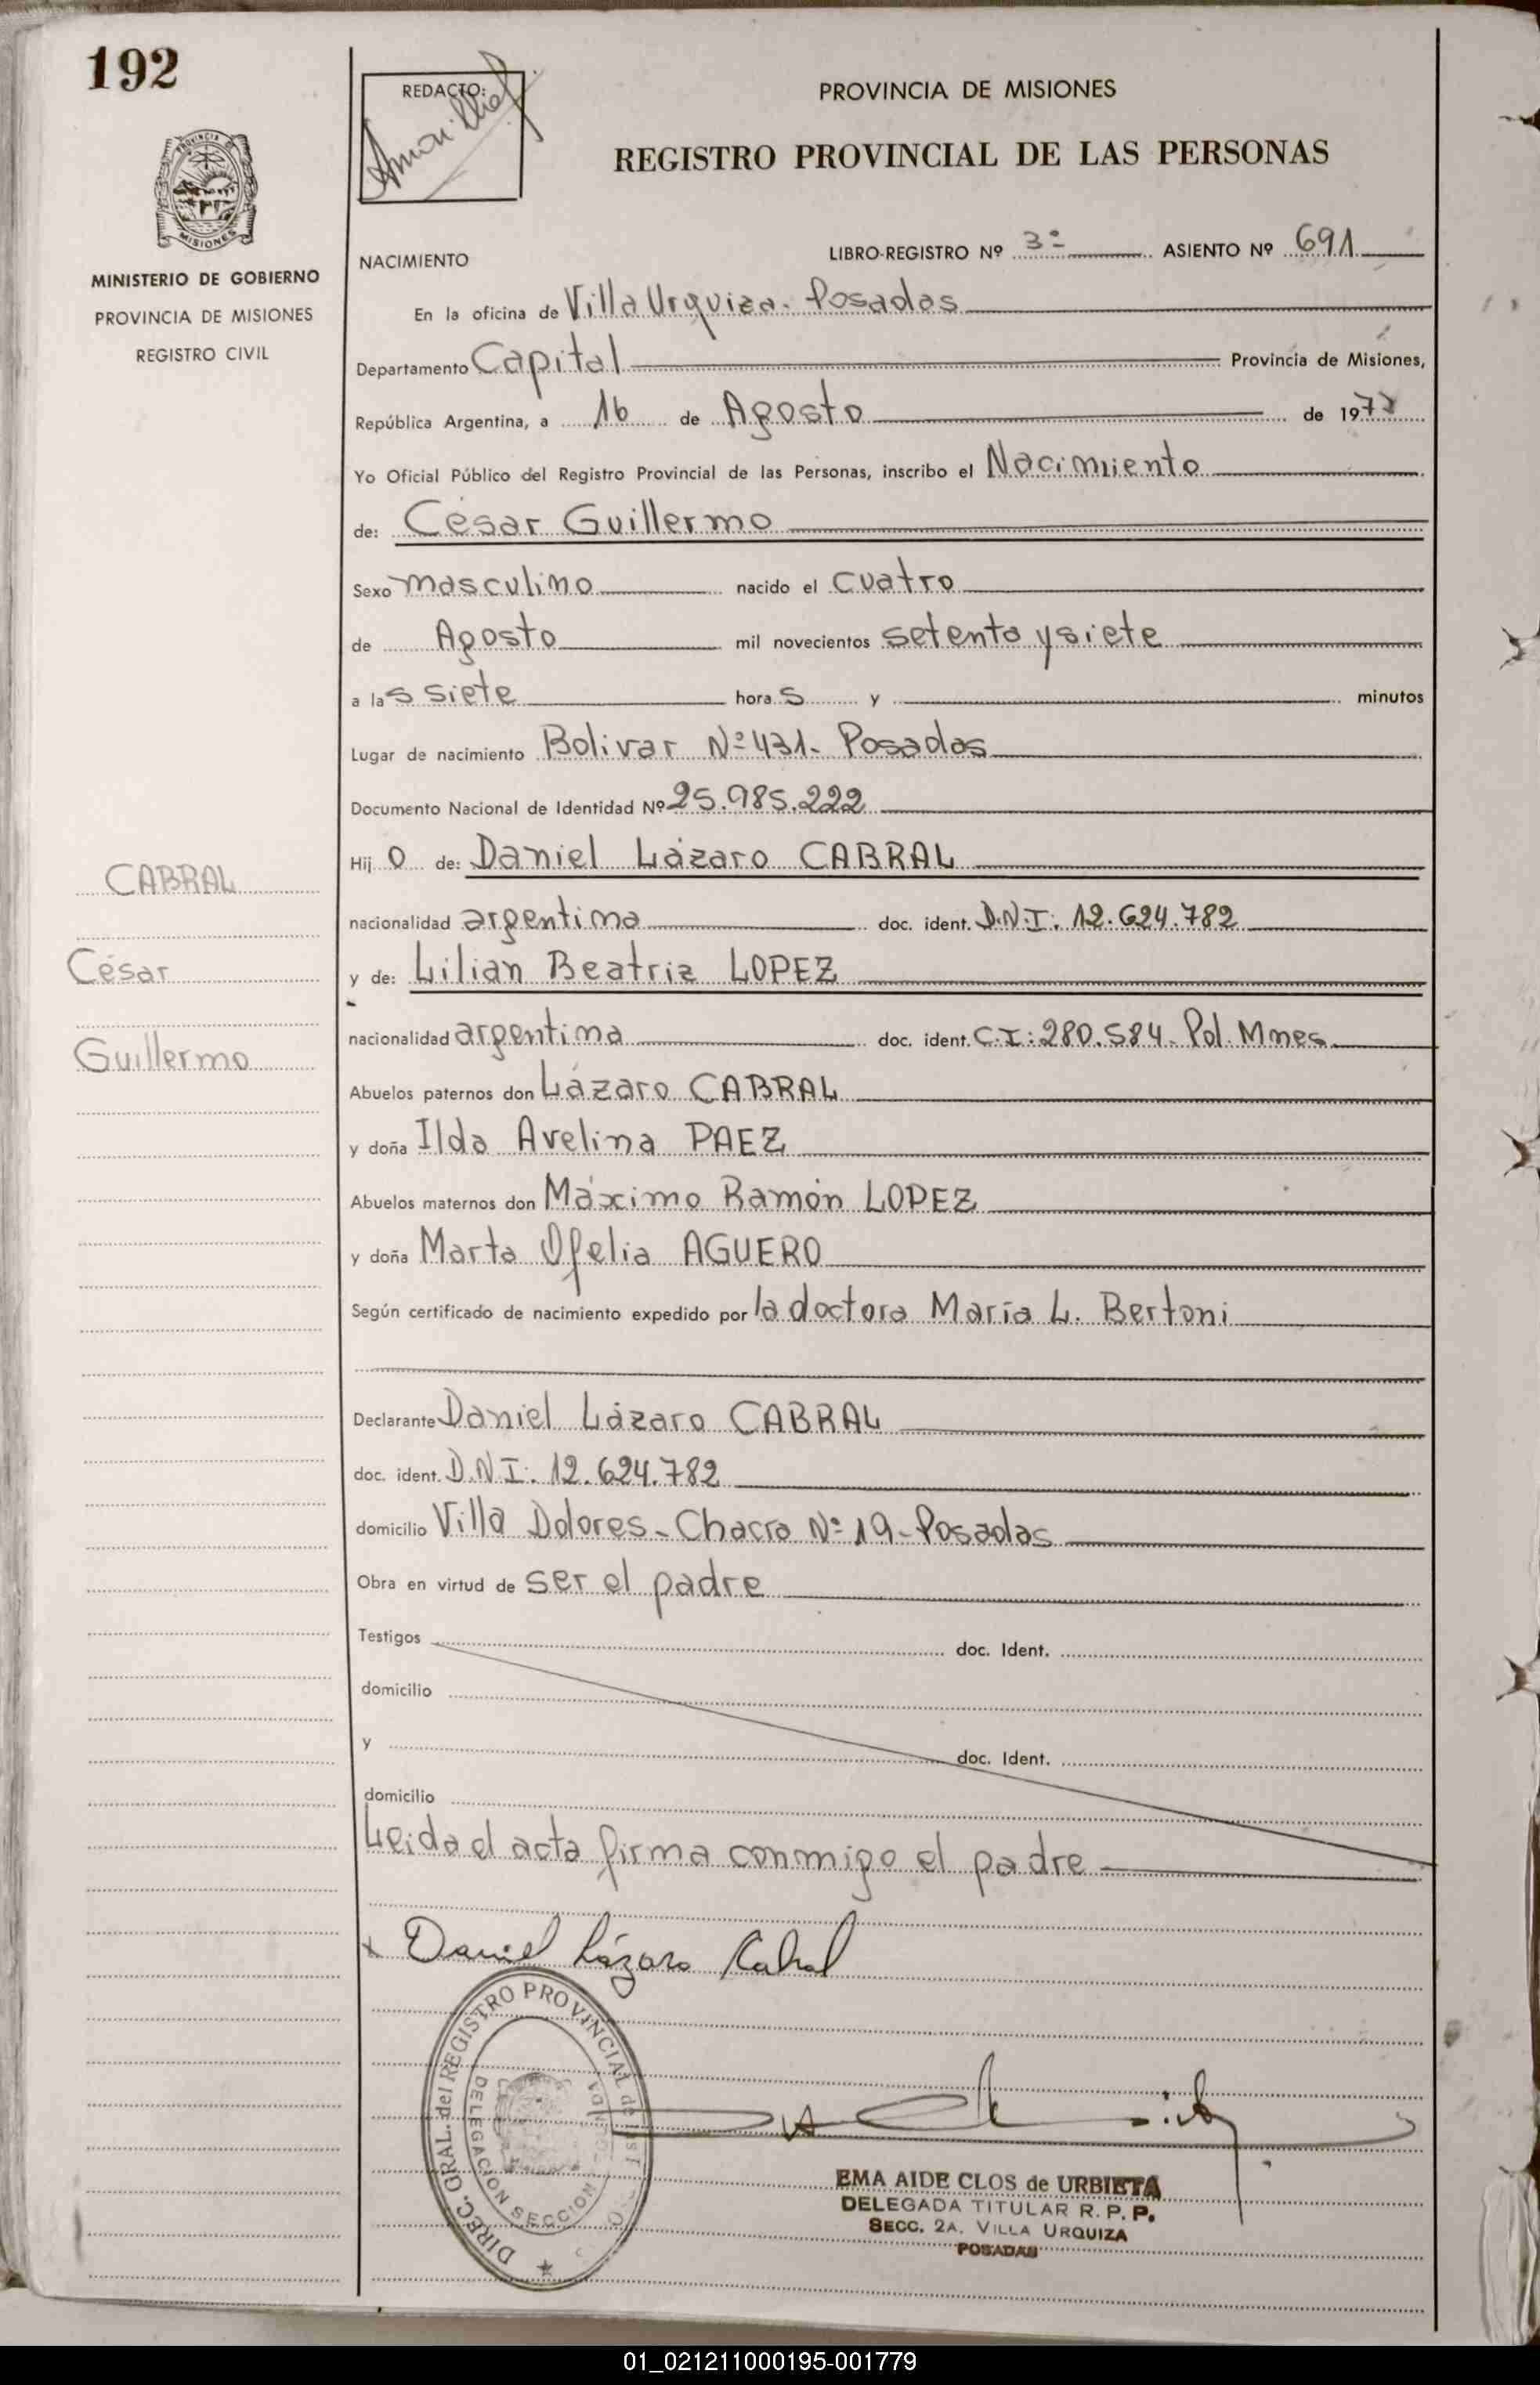 192
REDACTO:
PROVINCIA DE MISIONES
REGISTRO PROVINCIAL DE LAS PERSONAS
PROVINCIA DE
MISIONES
MINISTERIO DE GOBIERNO
PROVINCIA DE MISIONES
REGISTRO CIVIL
NACIMIENTO
LIBRO-REGISTRO Nº 3º ASIENTO Nº 691
En la oficina de Villa Urquiza - Posadas
Departamento Capital Provincia de Misiones,
República Argentina, a 16 de Agosto de 1977
Yo Oficial Público del Registro Provincial de las Personas, inscribo el Nacimiento
de: César Guillermo
Sexo masculino nacido el cuatro
de Agosto mil novecientos setenta y siete
a las siete horas y minutos
Lugar de nacimiento Bolivar Nº 431 - Posadas
Documento Nacional de Identidad Nº 25.985.222
Hijo de: Daniel Lázaro CABRAL
CABRAL
nacionalidad argentina doc. ident. D.N.I: 12.624.782
César
y de: Lilian Beatriz LOPEZ
Guillermo
nacionalidad argentina doc. ident. C.I: 280.584 - Pol. Mnes
Abuelos paternos don Lázaro CABRAL
y doña Ilda Avelina PAEZ
Abuelos maternos don Máximo Ramón LOPEZ
y doña Marta Ofelia AGUERO
Según certificado de nacimiento expedido por la doctora María L. Bertoni
Declarante Daniel Lázaro CABRAL
doc. ident. D.N.I: 12.624.782
domicilio Villa Dolores - Chacra Nº 19 - Posadas
Obra en virtud de ser el padre
Testigos doc. Ident.
domicilio
y doc. Ident.
domicilio
Leida el acta firma conmigo el padre
x Daniel Lázaro Cabral
DIREC. GRAL. del REGISTRO PROVINCIAL de las
DELEGACION SECCION
EMA AIDE CLOS de URBIETA
DELEGADA TITULAR R. P. P.
SECC. 2A. VILLA URQUIZA
POSADAS
01_021211000195-001779